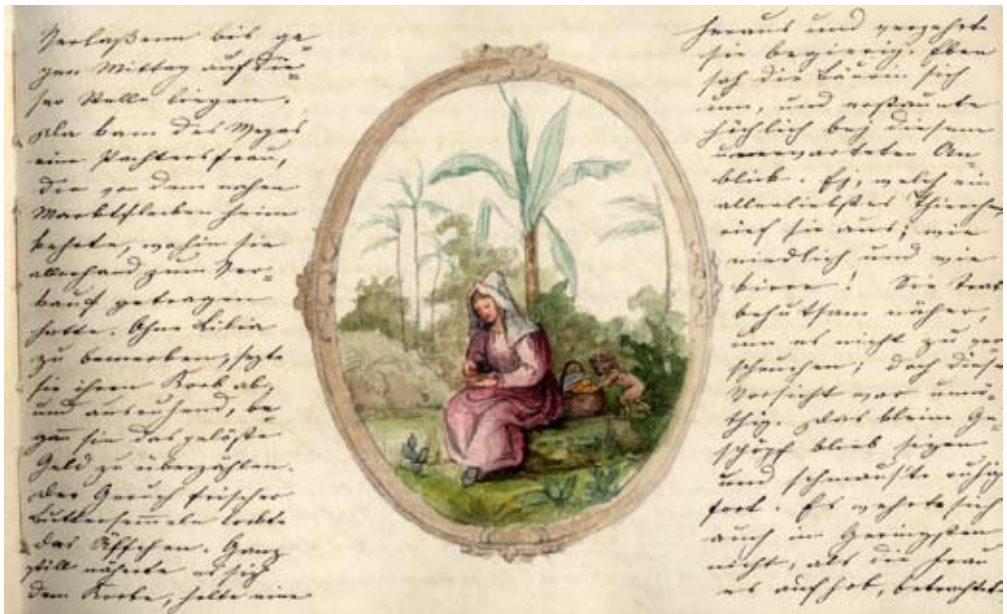 Verlaßenn bis ge
gen Mittag auf die-
ser Stelle liegen.
Da kam des Weges
eine Pachtersfrau,
die von dem nahen
Marktflecken heim
kehrte, wohin sie
allerhand zum Ver-
kauf getragen
hatte. Ohne Libia
zu bemerken, sezte
sie ihren Korb ab,
und ausruhend, be
gan̄ sie das gelößte
Geld zu überzählen.
Der Geruch frischer
Buttersem̄eln lockte
das Äffchen. Ganz
still näherte es sich
dem Korbe, holte eine
heraus und verzehrte
sie begierig. Eben
sah die Bäurin sich
um, und erstaunte
höchlich bej diesem
unerwarteten An-
blick. Ej, welch ein
allerliebstes Thierchen
rief sie aus; wie
niedlich und wie
kirre! Sie trat
behutsam näher,
um es nicht zu ver
scheuchen; doch diese
Vorsicht war unnö-
thig. Das kleine Ge-
schöpf blieb sizen
und schmauste ruhig
fort. Es wehrte sich
auch im Geringsten
nicht, als die Frau
es aufhob, betrachtete